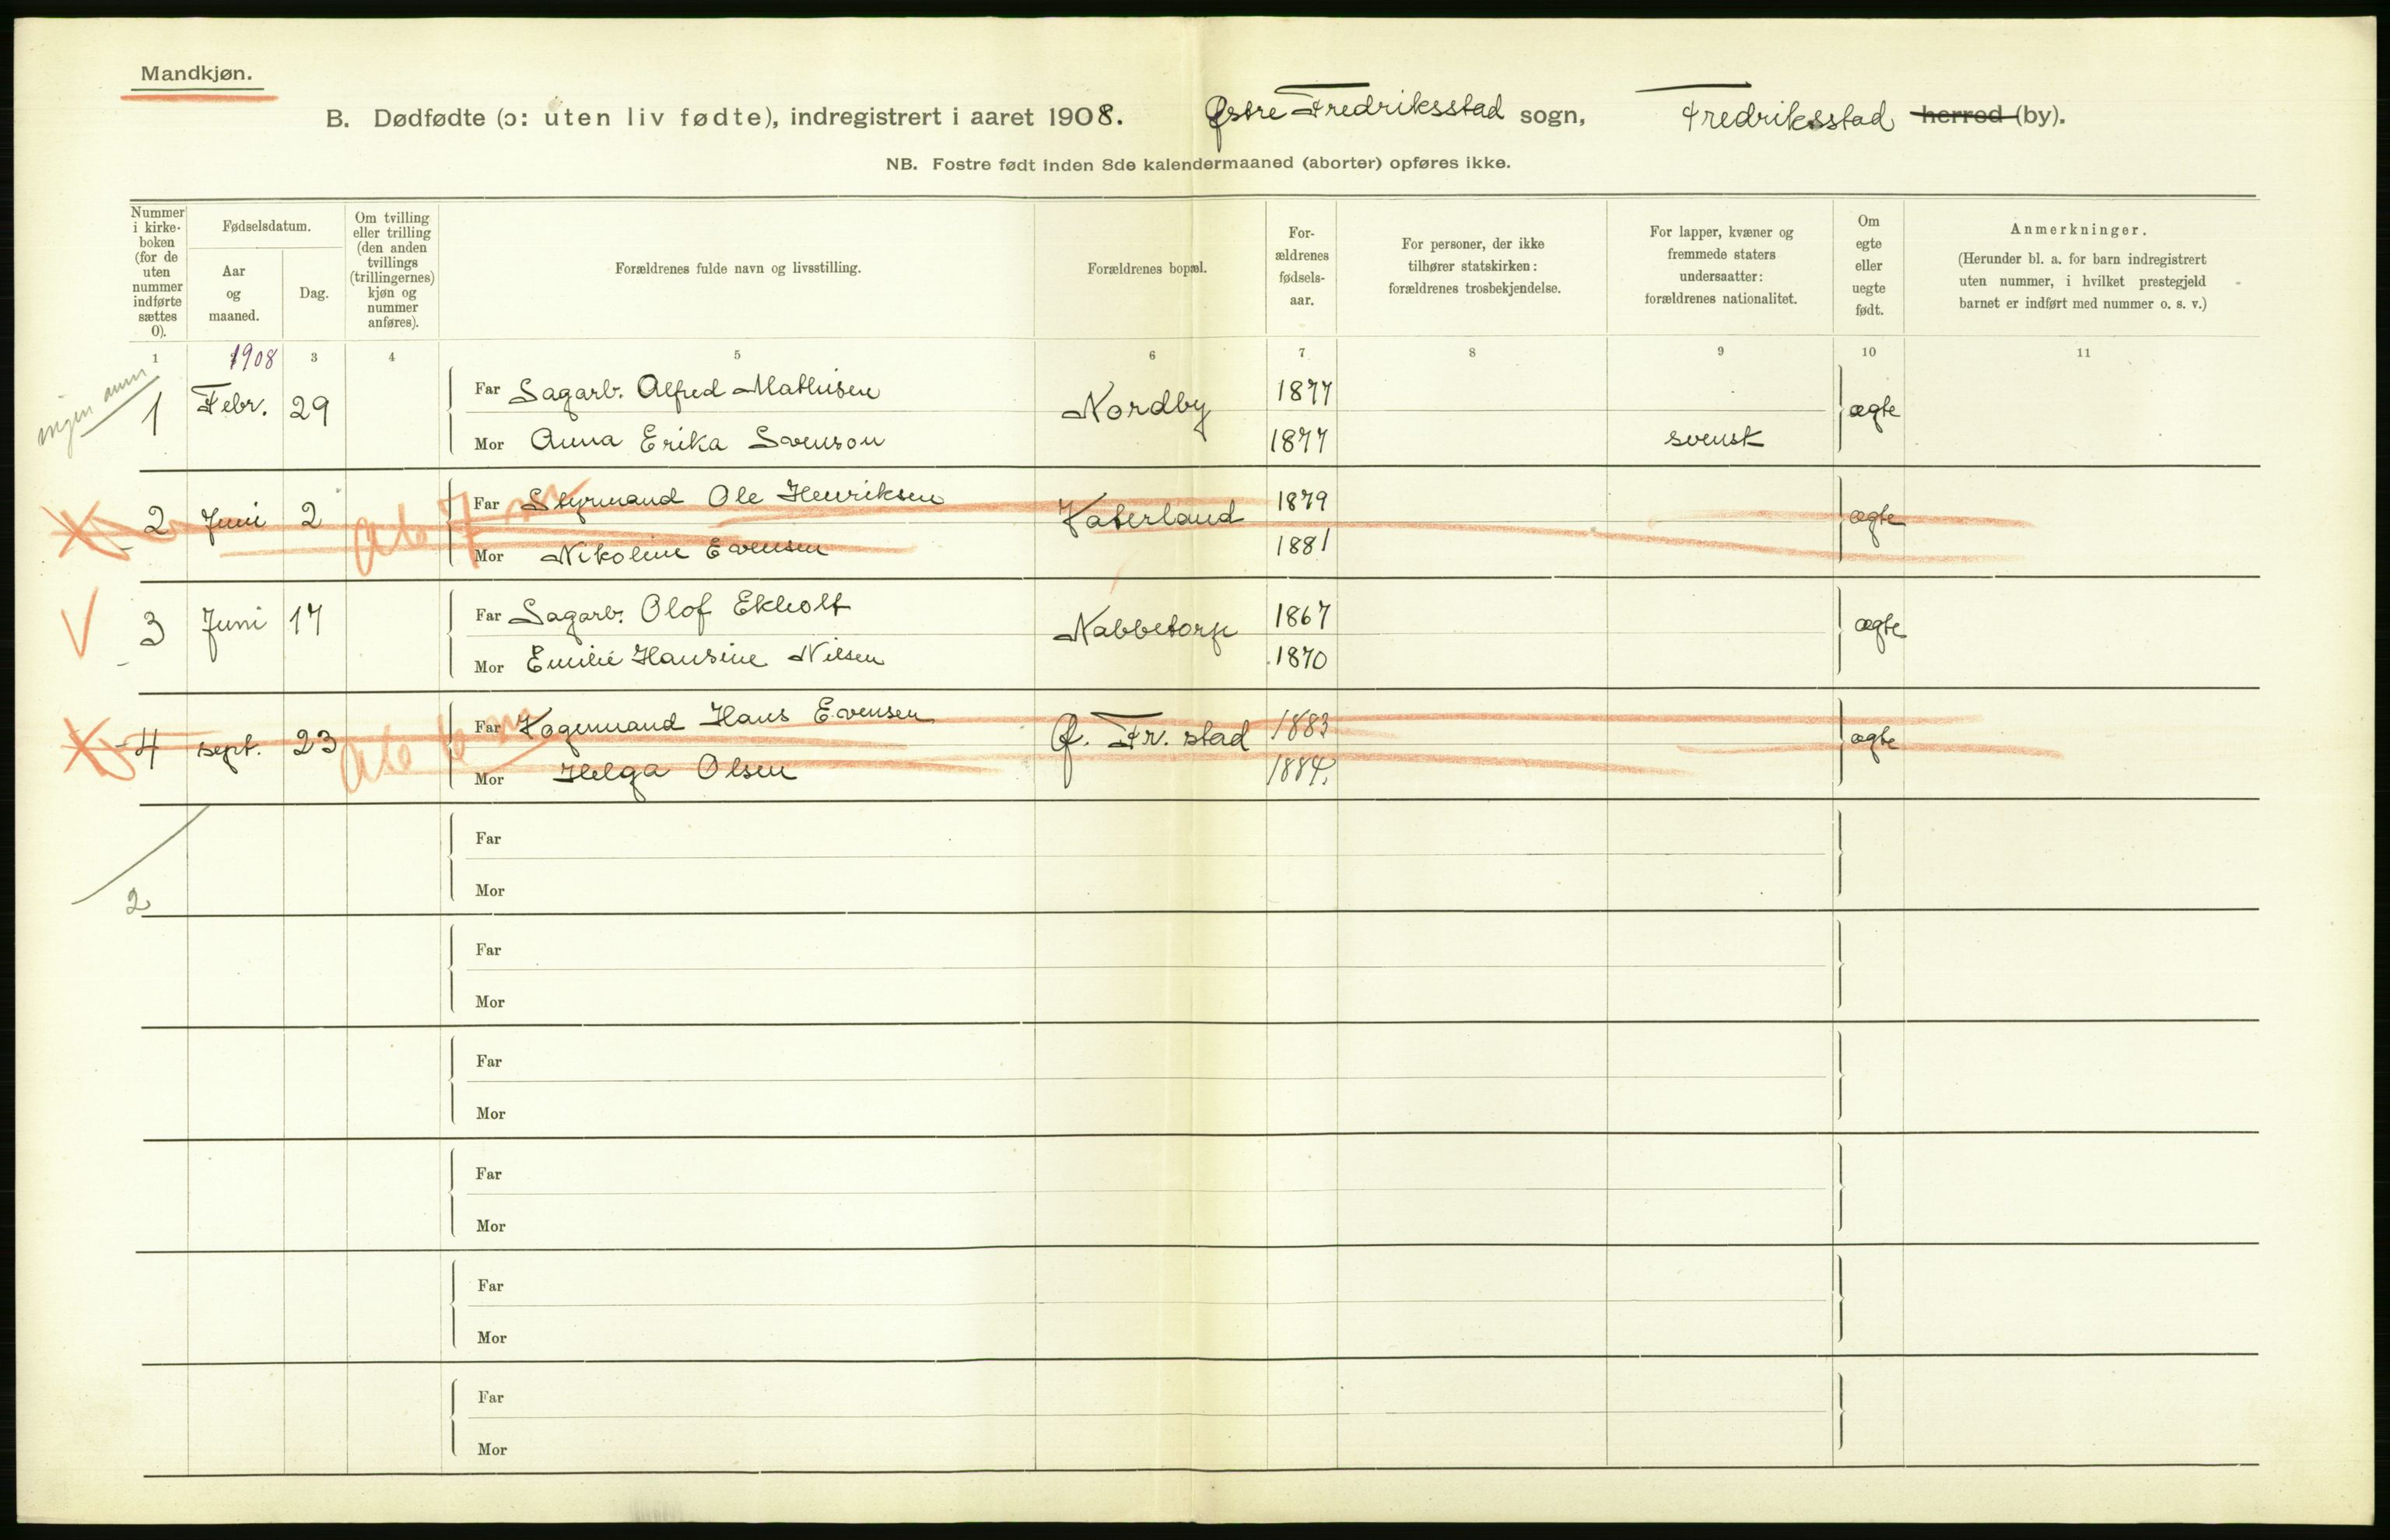 Mandkjøn.
B. Dødfødte (ɔ: uten liv fødte), indregistrert i aaret 1908. Østre Fredriksstad sogn, Fredriksstad herred (by).
NB. Fostre født inden 8de kalendermaaned (aborter) opføres ikke.
Nummer i kirke-boken (for de uten nummer indførte sættes 0).
Fødselsdatum.
Aar og maaned.
Dag.
Om tvilling eller trilling (den anden tvillings (trillingernes) kjøn og nummer anføres).
Forældrenes fulde navn og livsstilling.
Forældrenes bopæl.
For-ældrenes fødsels-aar.
For personer, der ikke tilhører statskirken: forældrenes trosbekjendelse.
For lapper, kvæner og fremmede staters undersaatter: forældrenes nationalitet.
Om egte eller uegte født.
Anmerkninger.
(Herunder bl. a. for barn indregistrert uten nummer, i hvilket prestegjeld barnet er indført med nummer o. s. v.)
1 1908 3 4 5 6 7 8 9 10 11
ingen anm
1 Febr. 29 Far Sagarb. Alfred Mathisen Nordby 1877 ægte
Mor Anna Erika Svenson 1877 svensk
2 Juni 2 Far Styrmand Ole Henriksen Katerland 1879 ægte
ab 7 m
Mor Nikoline Evensen 1881
3 Juni 17 Far Sagarb. Olof Ekholt Nabbetorp 1867 ægte
Mor Emilie Hansine Nilsen 1870
4 sept. 23 Far Vognmand Hans Evensen Ø. Fr. stad 1883 ægte
ab 6 m
Mor Helga Olsen 1884.
Far
Mor
2
Far
Mor
Far
Mor
Far
Mor
Far
Mor
Far
Mor